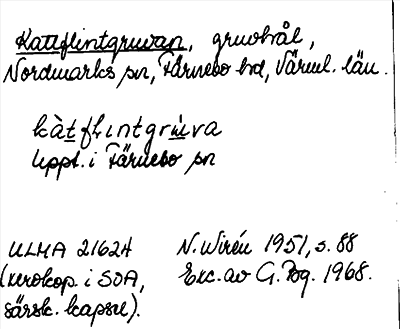 Kattflintgruvan, gruvhål,
Nordmarks sn, Färnebo hd, Värml. län.
kàtflintgrùva
Uppt. i Färnebo sn
ULMA 21624 N. Wirén 1951, s. 88
(xerokop. i SOA, Exc. av G. Pg. 1968.
särsk. kapsel).